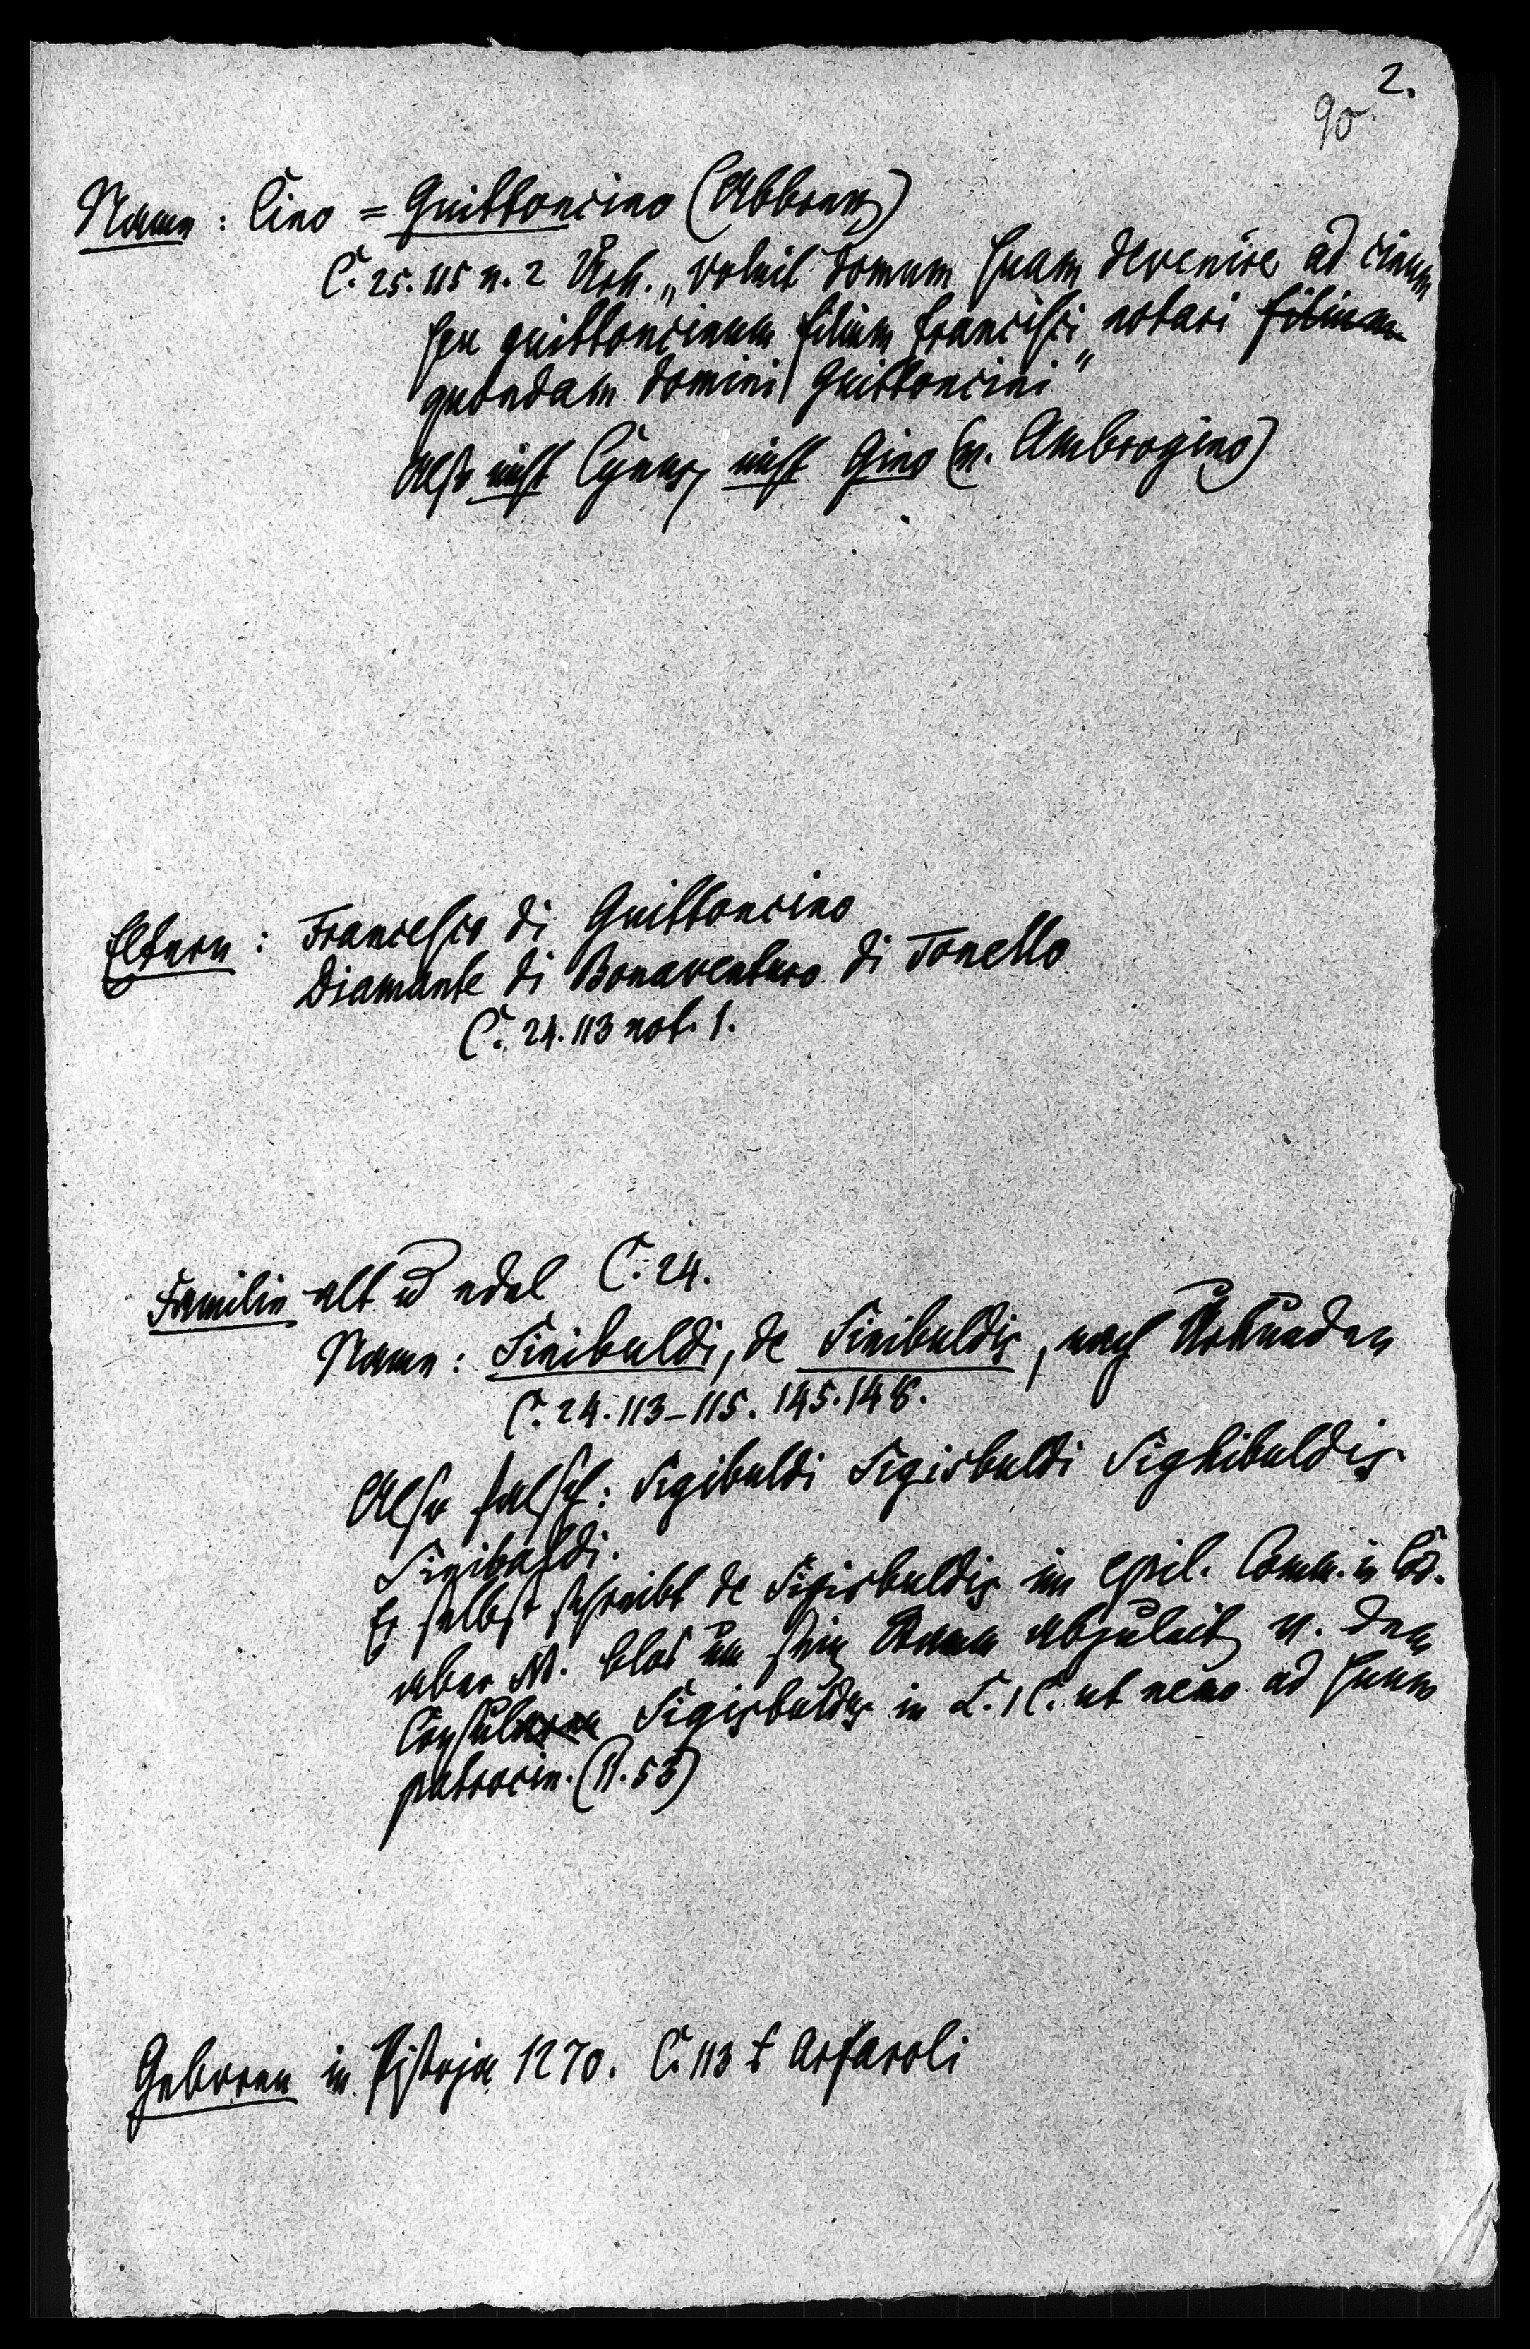 2.
90
Name: Cino = Guittoncino (Abbrev.)
C. 25. 115 n. 2 Urk. „voluit domum suam devenire ad cinum
seu guittoncinum filium francisci notari filium
quondam domini Guittoncini“
Also nicht Cynus, nicht Gino (v. Ambrogino)
Eltern: Francesco di Guittoncino
Diamante di Bonaventura di Tonello
C. 24. 113 not. 1.
Familie alt u edel C. 24.
Name: Sinibuldi, de Sinibuldis, nach Urkunden
C. 24. 113–115. 145. 148.
Also falsch: Sigibuldi Sigisbuldi Sighibuldis
Sinibaldi.
Er selbst schreibt de Sigisbuldis im epil. Comm. in Cod.
aber blos um sein Namen abzuleiten v. dem
Consul Sigisbuldus in L. 1 C. ut nemo ad suum
patrocin. (II. 53)
Geboren in Pistoja 1270. C. 113 f Arfaroli